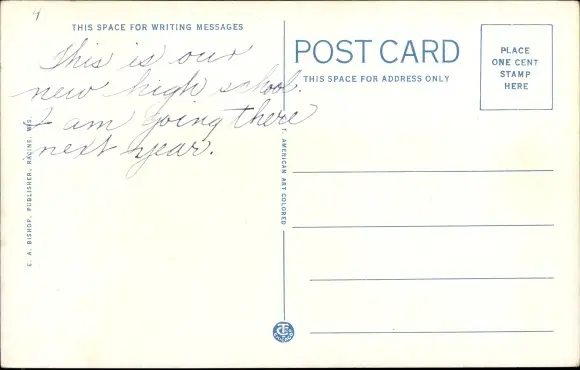 4
THIS SPACE FOR WRITING MESSAGES
This is our
new high school.
I am going there
next year.
E. A. BISHOP, PUBLISHER, RACINE, WIS.
POST CARD
THIS SPACE FOR ADDRESS ONLY
PLACE
ONE CENT
STAMP
HERE
T. AMERICAN ART COLORED